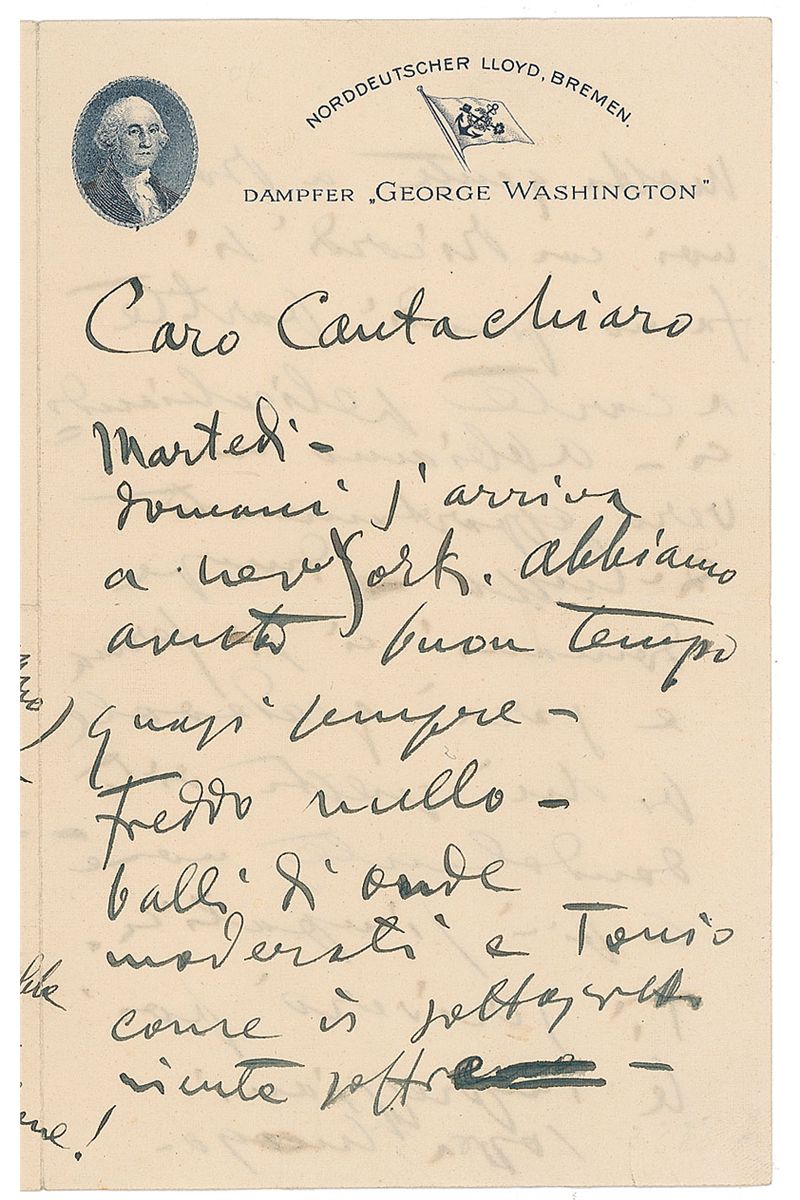 NORDDEUTSCHER LLOYD, BREMEN.
DAMPFER „GEORGE WASHINGTON"
Caro Cantachiaro
Martedi -
domani s'arriva
a new York. abbiamo
avuto buon tempo
quasi sempre -
Freddo nullo -
balli di onde
moderati e Tonio
come il sottoscritto
niente soffr